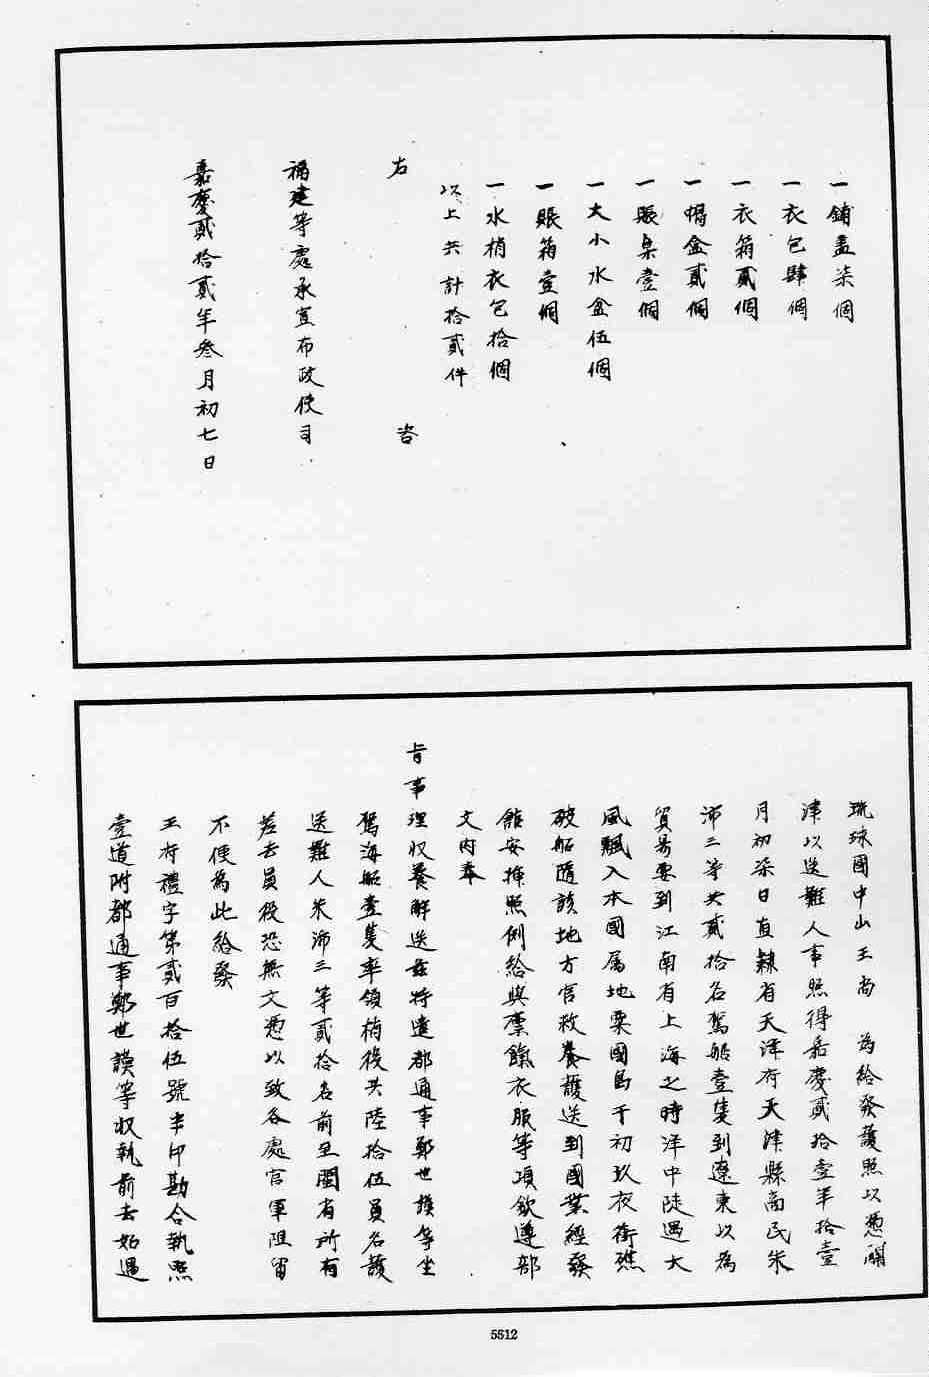 一鋪蓋柒個
一衣包肆個
一衣箱貳個
一帽盒貳個
一賬桌壹個
一大小水盆伍個
一賬箱壹個
一水梢衣包拾個
以上共計拾貳件
右咨
福建等處承宣布政使司
嘉慶貳拾貳年叁月初七日
琉球國中山王尚　為給發護照以憑關
津以送難人事照得嘉慶貳拾壹年拾壹
月初柒日直隸省天津府天津縣商民朱
沛三等共貳拾名駕船壹隻到遼東以為
貿易要到江南省上海之時洋中陡遇大
風飄入本國属地粟國島于初玖夜衝礁
破船隨該地方官救養護送到國業經發
館安揷照例給與廪餼衣服等項欽遵部
文内奉
旨事理収養解送兹特遣都通事鄭世謨等坐
駕海船壹隻率領梢役共陸拾伍員名護
送難人朱沛三等貳拾名前至閩省所有
差去員役恐無文憑以致各處官軍阻留
不便為此給發
王府禮字第貳百拾伍號半印勘合執照
壹道附都通事鄭世謨等収執前去如遇
5512